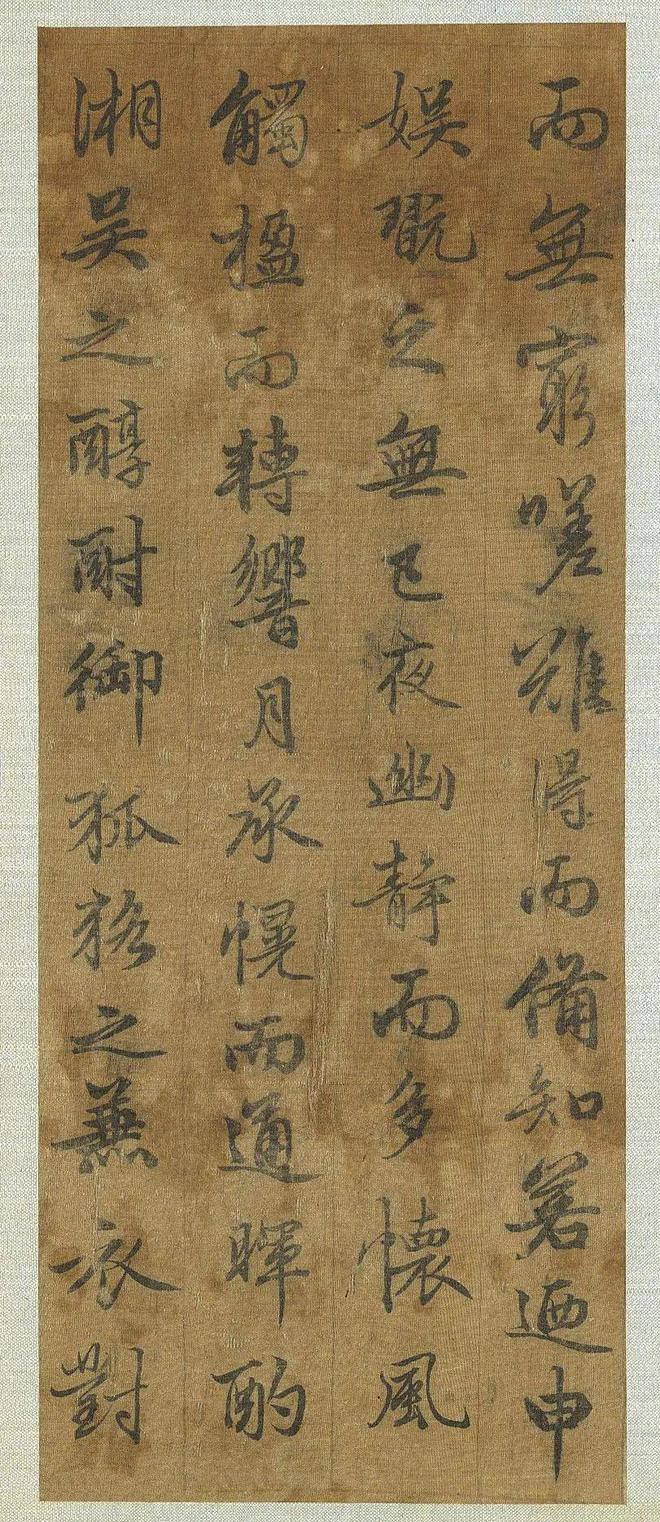 而無窮嗟難得而備知若迺申
娛翫之無已夜幽靜而多懷風
觸楹而轉響月承幌而通暉酌
湘吳之醇酎御狐狢之兼衣對